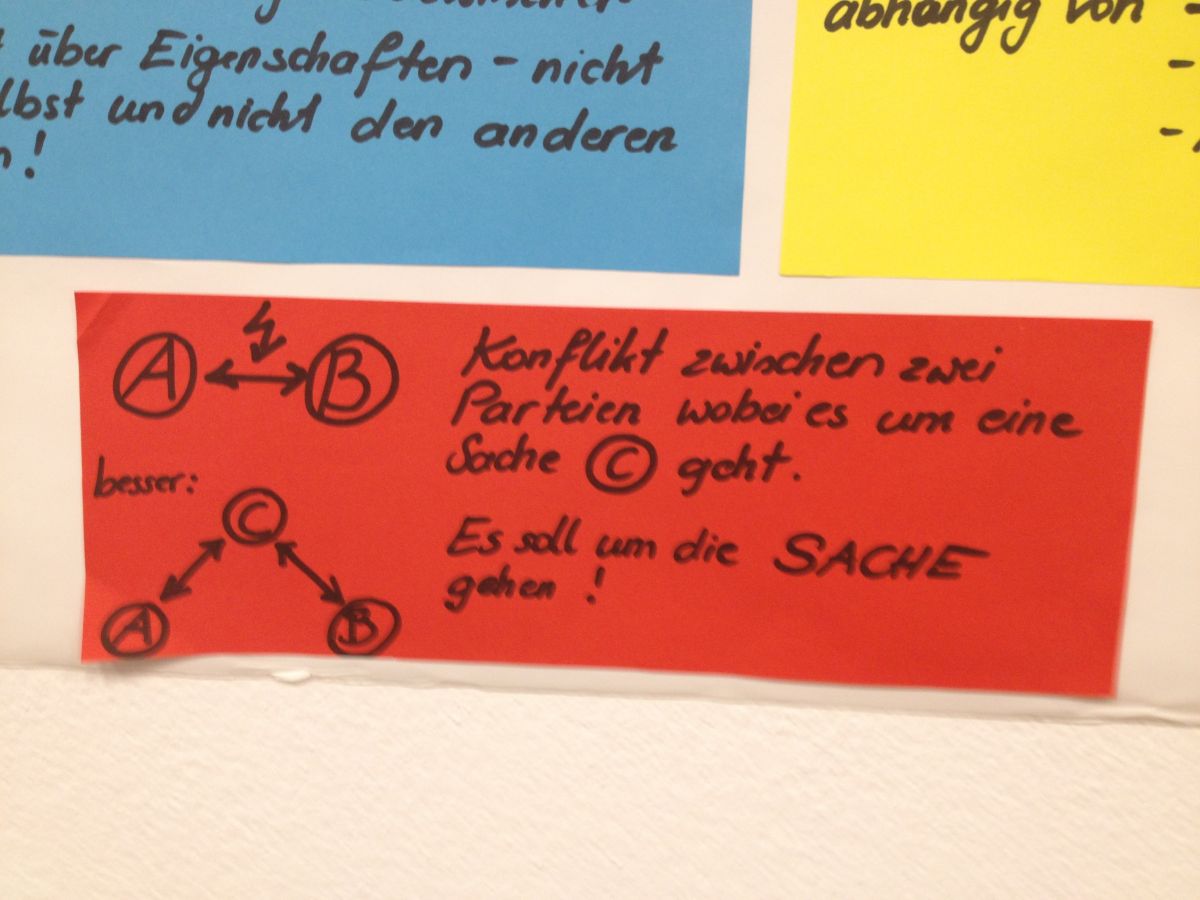 über Eigenschaften - nicht
und nicht den anderen
!
abhängig von -
-
-
A B
besser:
C
A B
Konflikt zwischen zwei
Parteien wobei es um eine
Sache C geht.
Es soll um die SACHE
gehen !